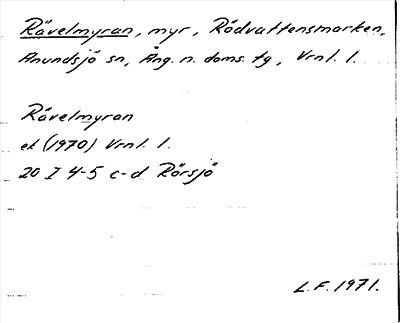 Rävelmyran, myr, Rödvattensmarken,
Anundsjö sn, Ång. n. doms. tg, Vrnl. l.
Rävelmyran
ek (1970) Vrnl. l.
20 I 4-5 c-d Rörsjö
L.F. 1971.